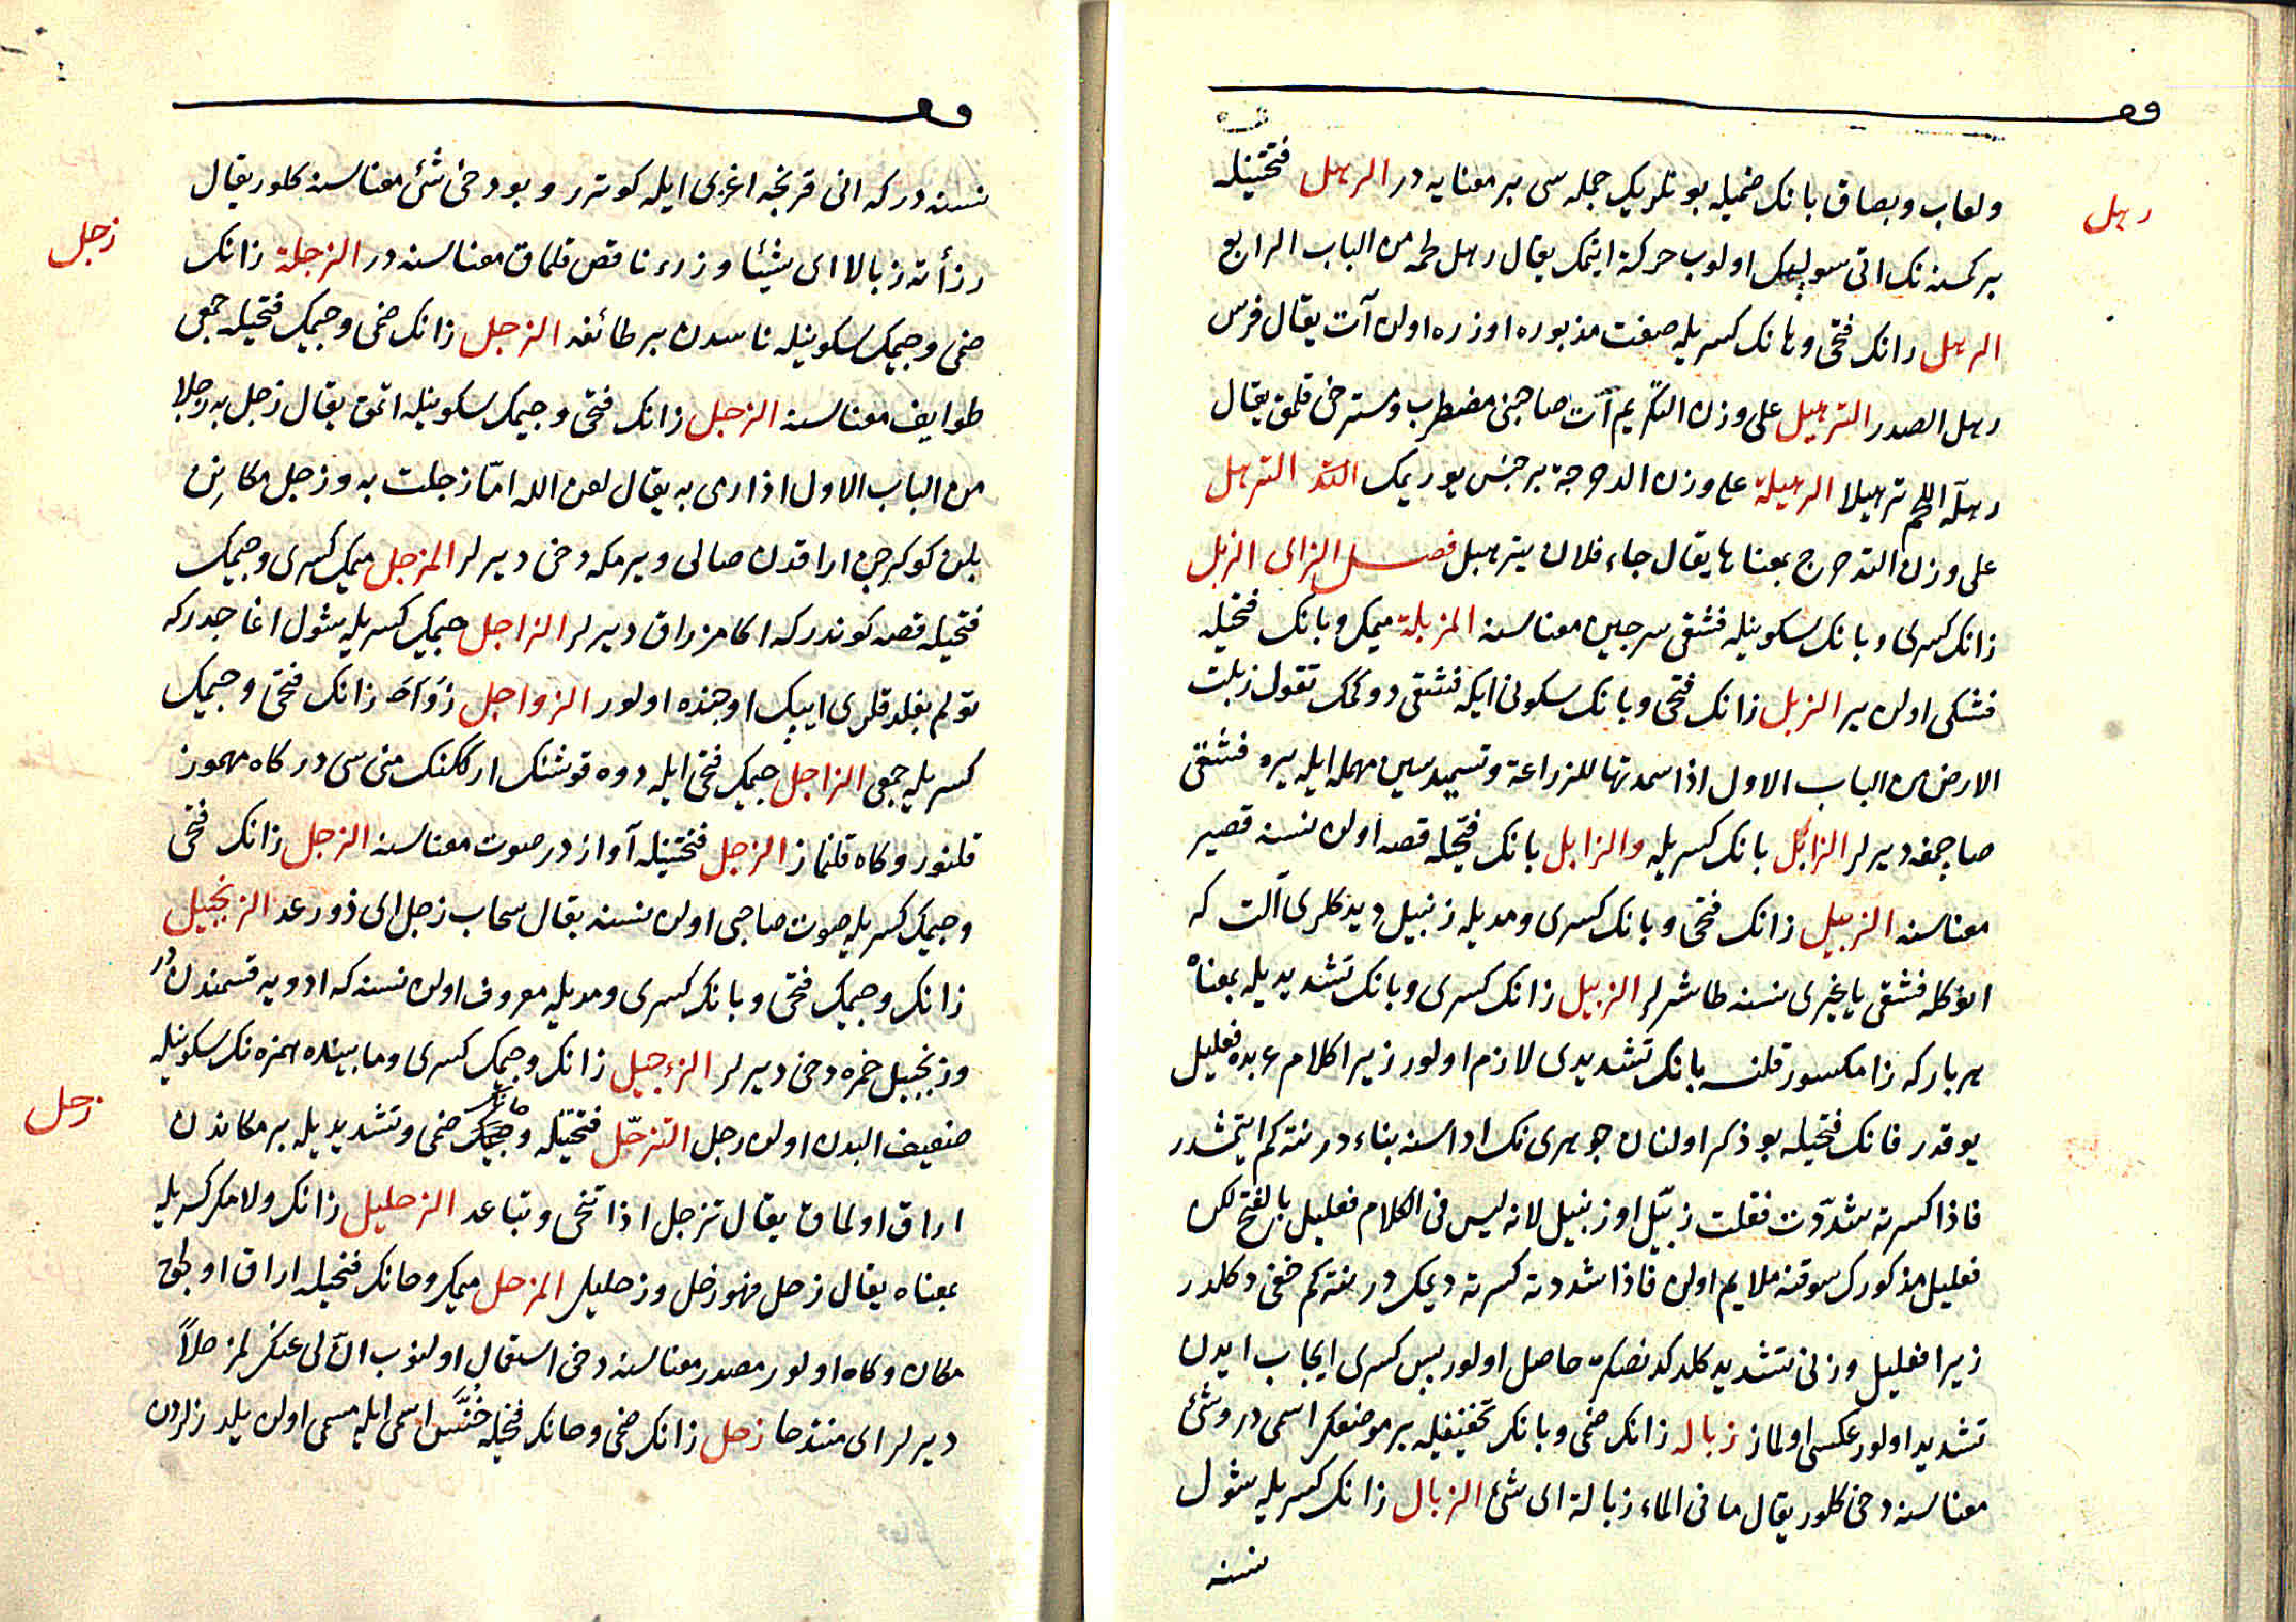 وق
رهل
ولعاب وبصاق بانك ضميله بونلريك جمله سى بر معنايه در الرهل فتحتيله
بر كمسنه نك اتى سولپك اولوب حركة ايتمك يقال رهل لحمه من الباب الرابع
الرهل رانك فتحى وهانك كسريله صفت مذبوره اوزره اولن آت يقال فرس
رهل الصدر الترهيل على وزن التكريم آت صاحبنى مضطرب ومسترخى قلمق يقال
رهله اللحم ترهيلا الرهيلة على وزن الدحرجة بر جنس يوريمك الترهل
على وزن التدحرج بمعناها يقال جاء فلان يترهيل فصل الزاى الزبل
زانك كسرى وبانك سكونيله فشقى سرجين معناسنه المزبلة ميمك وبانك فتحيله
فشكى اولن ير الزبل زانك فتحى وبانك سكونى ايله فشقى دوكمك تقول زبلت
الارض من الباب الاول اذا سمدتها للزراعة وتسميد سين مهمله ايله يره فشقى
صاچمغه ديرلر الزابل بانك كسريله والزابل بانك فتحيله قصه اولن نسنه قصير
معناسنه الزبيل زانك فتحى وبانك كسرى ومديله زنبيل ديدكلرى آلت كه
انوكله فشقى يا غيرى نسنه طاشرلر الزبيل زانك كسرى وبانك تشديديله بمعناه
هر بار كه زا مكسور قلنسه بانك تشديدى لازم اولور زيرا كلام عربده فعليل
يوقدر فانك فتحيله بو ذكر اولنان جوهرى نك اداسنه بناء در نته كم ايتمشدر
فاذا كسرته شددت فقلت زبيل او زنبيل لانه ليس فى الكلام فعليل بالفتح لكن
فعليل مذكورك سوقنه ملايم اولن فاذا شددته كسرته ديمك در نته كم خفى دكلدر
زيرا فعليل وزنى تشديد كلدكدنصكره حاصل اولور پس كسرى ايجاب ايدن
تشديد اولور عكسى اولماز زباله زانك ضمى وبانك تخفيفيله بر موضعك اسمى در وشئ
معناسنه دخى كلور يقال ما فى الماء زبالة اى شئ الزبال زانك كسريله شول
نسنه
وق
نسنه در كه انى قرنجه اغزى ايله كوترر وبو دخى شئ معناسنه كلور يقال
زجل
رزأته زبالا اى شيئا ورزء ناقص قلماق معناسنه در الزجلة زانك
ضمى وجيمك سكونيله ناسدن بر طائفه الزجل زانك ضمى وجيمك فتحيله جمعى
طوايف معناسنه الزجل زانك فتحى وجيمك سكونيله اتمق يقال زجل به زجلا
من الباب الاول اذا رمى به يقال لعن الله اما زجلت به وزجل مكانن
بلن كوكرجن اراقدن صالى ويرمكه دخى ديرلر المزجل ميمك كسرى وجيمك
فتحيله قصه كوندر كه اكا مزراق ديرلر الزاجل جيمك كسريله شول اغاجدر كه
تولم بغلدقلرى ايپك اوجنده اولور الزواجل زوا زانك فتحى وجيمك
كسريله جمعى الزاجل جيمك فتحى ايله دوه قوشنك ارككنك منى سى در كاه مهموز
قلنور وكاه قلنماز الزجل فتحتيله آواز در صوت معناسنه الزجل زانك فتحى
وجيمك كسريله صوت صاحبى اولن نسنه يقال سحاب زجل اى ذو رعد الزنجبيل
زانك وجيمك فتحى وبانك كسرى ومديله معروف اولن نسنه كه ادويه قسمندن در
وزنجبيل خمره دخى ديرلر الزءجيل زانك وجيمك كسرى ومابينده همزه نك سكونيله
زحل
ضعيف البدن اولن رجل التزحل فتحتيله وحانك ضمى وتشديديله بر مكاندن
اراق اولماق يقال تزحل اذا تنحى وتباعد الزحليل زانك ولامك كسريله
بمعناه يقال زحل فهو زحل وزحليل المزحل ميمك وحانك فتحيله اراق اولجق
مكان وكاه اولور مصدر معناسنه دخى استعمال اولنوب ان لى عنك لمزحلا
ديرلر اى منتدحا زحل زانك ضمى وحانك فتحيله خنس اسمى ايله مسمى اولن يلدزلردن